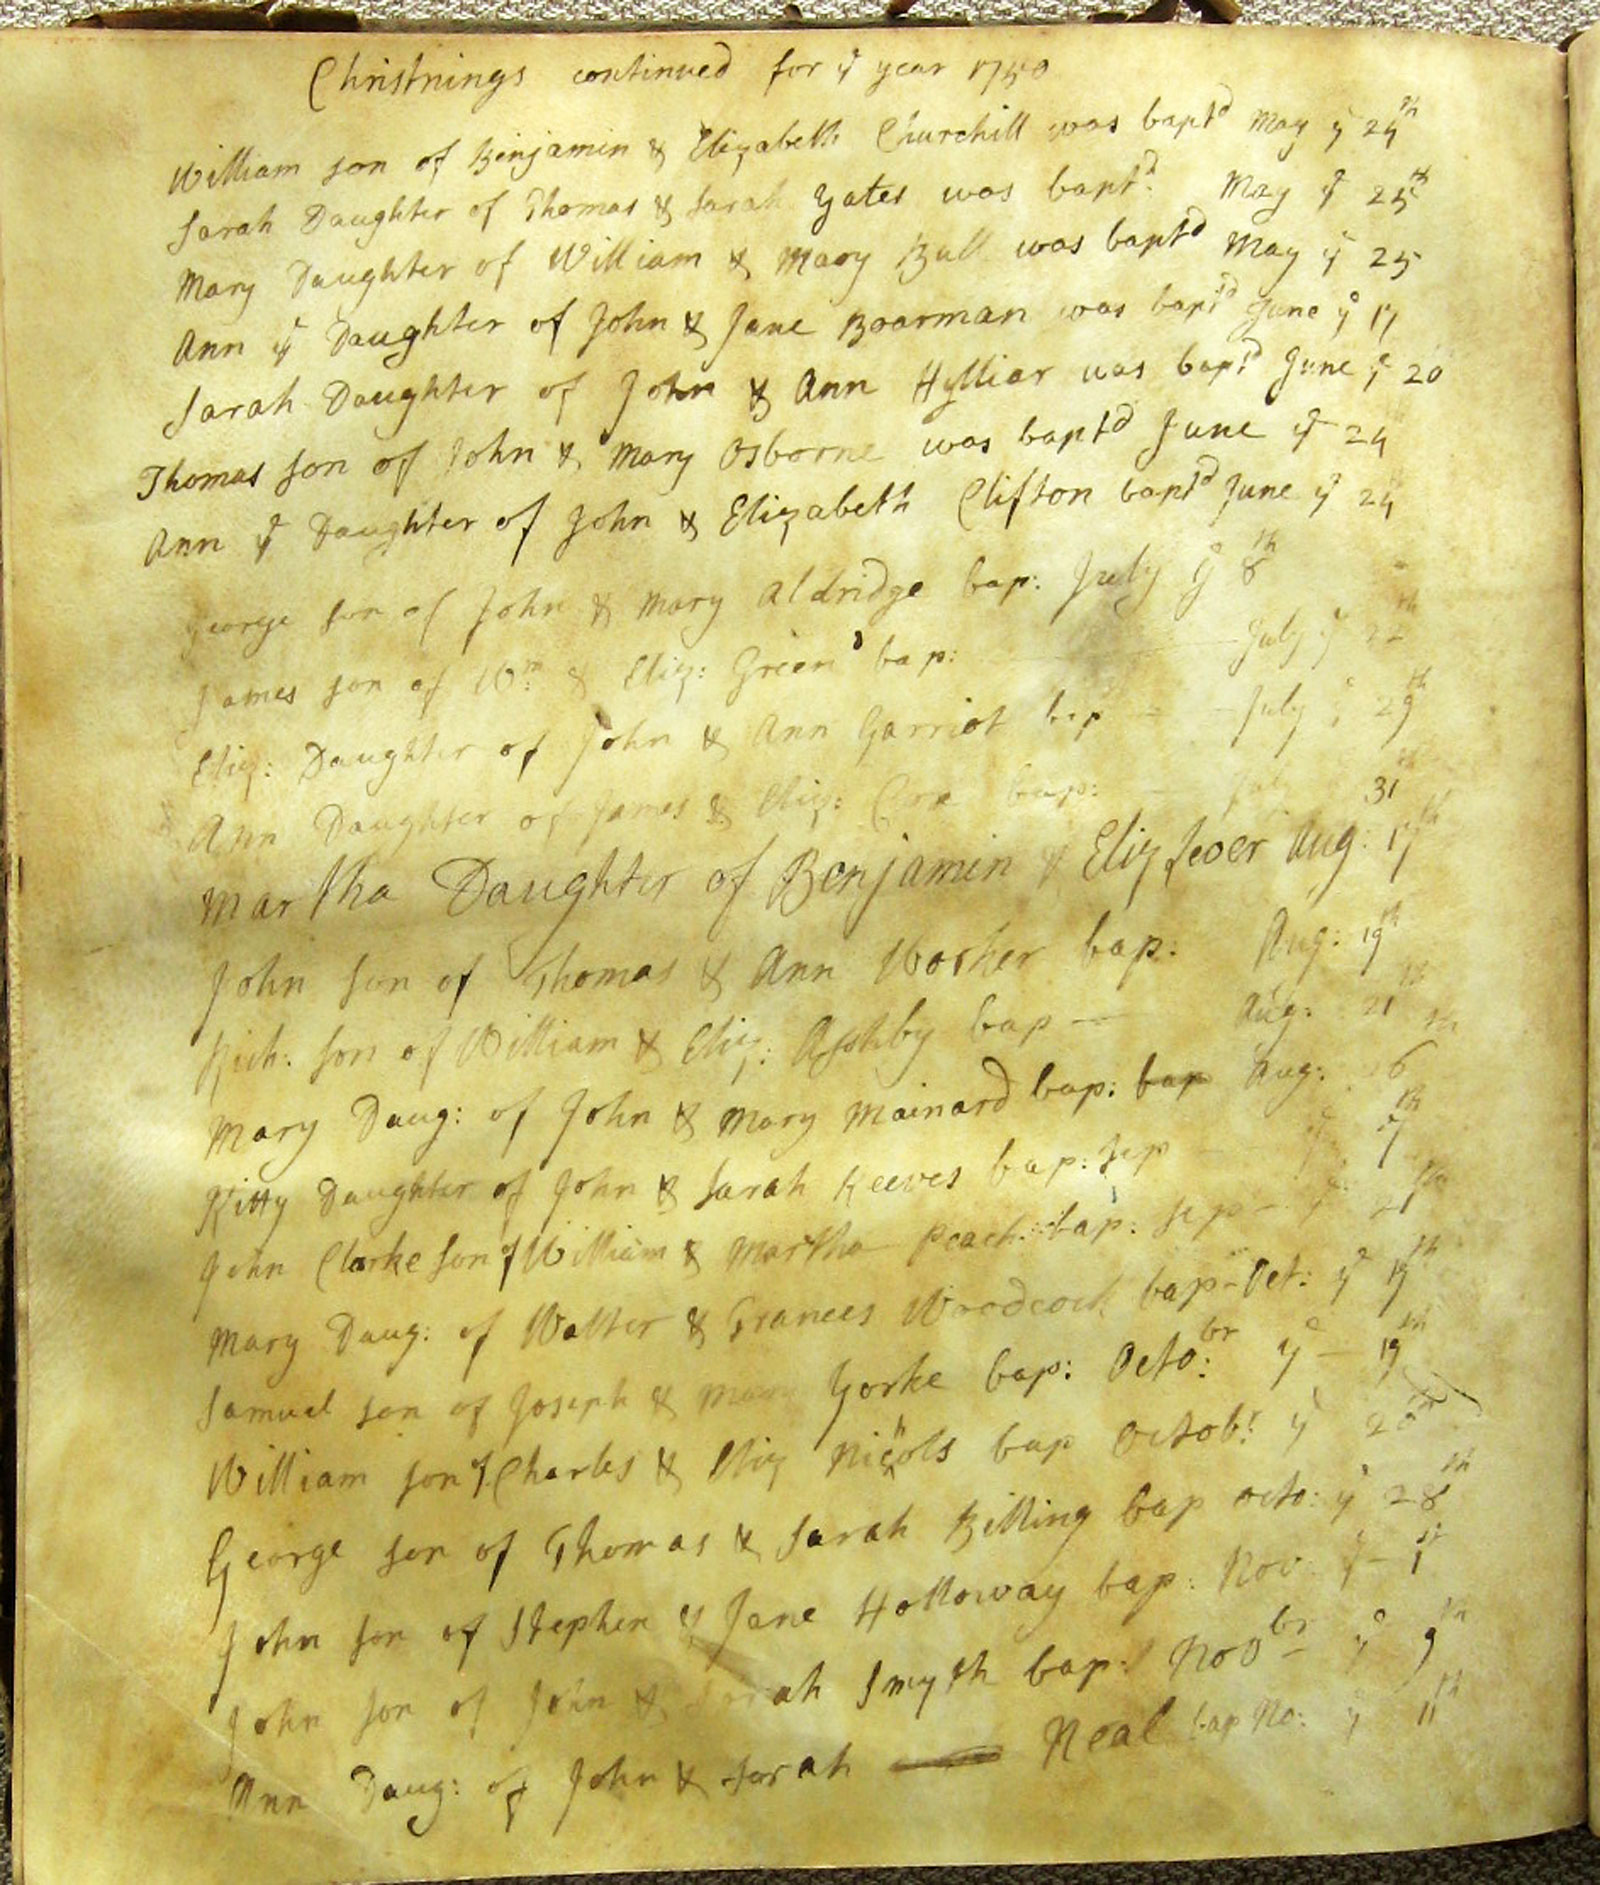 Christnings continued for ye year 1750
William son of Benjamin & Elizabeth Churchill was baptd May ye 24th
Sarah Daughter of Thomas & Sarah Yates was baptd: May ye 25th
Mary Daughter of William & Mary Bull was baptd May ye 25
Ann ye Daughter of John & Jane Boarman was baptd June ye 17
Sarah Daughter of John & Ann Hylliar was baptd June ye 20
Thomas son of John & Mary Osborne was baptd June ye 24
Ann ye Daughter of John & Elizabeth Clifton baptd June ye 24
George son of John & Mary Aldridge bap: July ye 8th
James son of Wm: & Eliz: Green bap: July ye 22th
Eliz: Daughter of John & Ann Garriot bap July ye 29th
Ann Daughter of James & Eliz: bap: July 31
Martha Daughter of Benjamin & Eliz Aug: 17th
John son of Thomas & Ann bap: Aug: 19th
Rich: son of William & Eliz: Ashby bap — Aug: 21th
Mary Daug: of John & Mary Mainard bap: bap Aug: 26th
Kitty Daughter of John & Sarah Reeves bap: Sep ye th
John Clarke son of William & Martha Peach: bap: Sep - ye 21th
Mary Daug: of Walter & Frances Woodcock bap - Oct: ye 17th
Samuel son of Joseph & Mary Yorke bap: Octo:br ye - 19th
William son of Charles & Eliz Nichols bap Octobr: ye 20th
George son of Thomas & Sarah Billing bap Octo: ye 28th
John son of Stephen & Jane Holloway bap: Nov: ye - 1st
John son of John & Sarah Smyth bap: Novbr ye 9th
Ann Daug: of John & Sarah Neal bap No: ye 11th